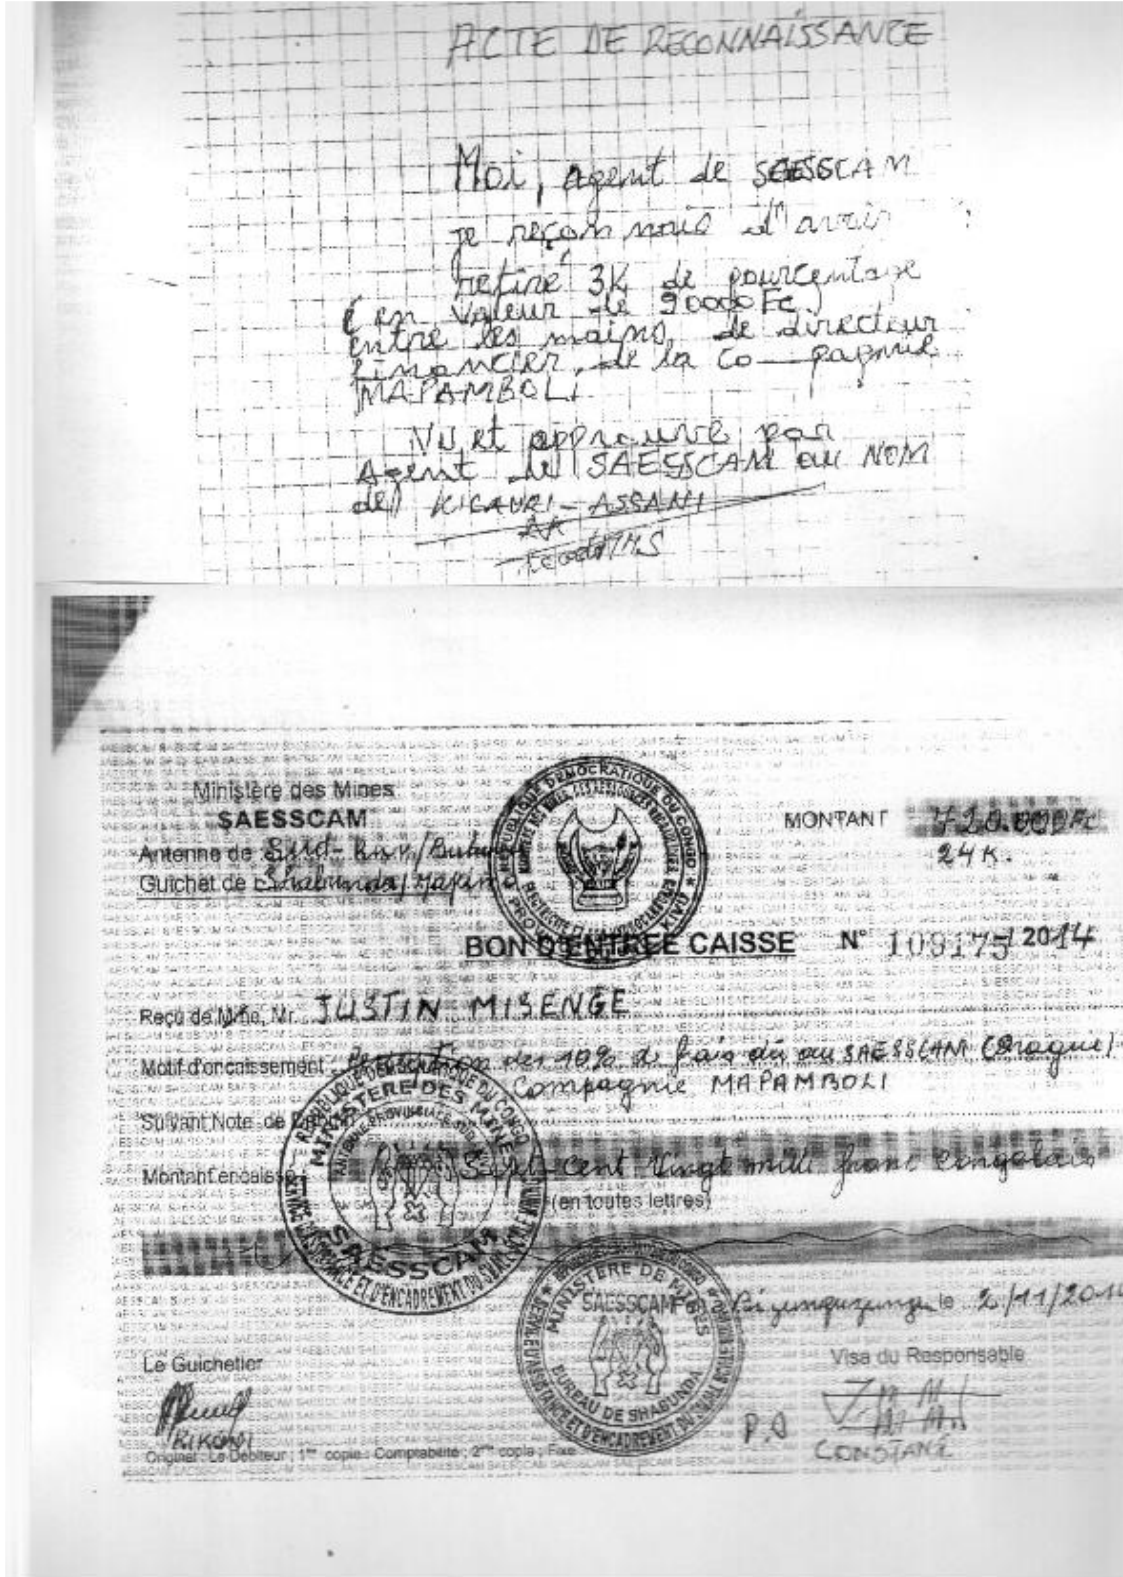 ACTE DE RECONNAISSANCE
Moi, agent de SAESSCAM
je reçonnais d'avoir
retiré 3K de pourcentage
(en valeur de 90000 Fc)
entre les mains, de directeur
financier, de la Co pagnie
MAPAMBOLI
Vu et approuvé par
Agent de SAESSCAM au NOM
de KICAURI - ASSANI
Ministère des Mines
SAESSCAM
Antenne de Sud-
Guichet de Shabunda/
MONTANT 720.000 Fc
24 K.
BON D'ENTREE CAISSE N° 109175/2014
Reçu de Mme, Mr. JUSTIN MISENGE
Motif d'encaissement des 10% de frais dû au SAESSCAM (Drague)
Compagnie MAPAMBOLI
Suivant Note de
Montant encaissé Sept-Cent Vingt mille franc congolais
(en toutes lettres)
REPUBLIQUE DEMOCRATIQUE DU CONGO
MINISTERE DES MINES
SAESSCAM
MINISTERE DE MINES
BUREAU DE SHABUNDA
SAESSCAM le 2/11/201
Le Guichetier
Visa du Responsable
KIKONI
P.O
CONSTANT
Original : Le Débiteur ; 1ère copie : Comptabilité ; 2ème copie : Fixe